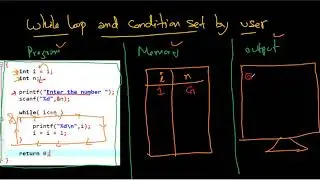 While loop and Condition set by user
Program
Memory
output
{
int i = 1;
int n;
printf("Enter the number ");
scanf("%d",&n);
while( i<=n )
{
printf("%d\n",i);
i = i + 1;
}
return 0;
i n
1 G